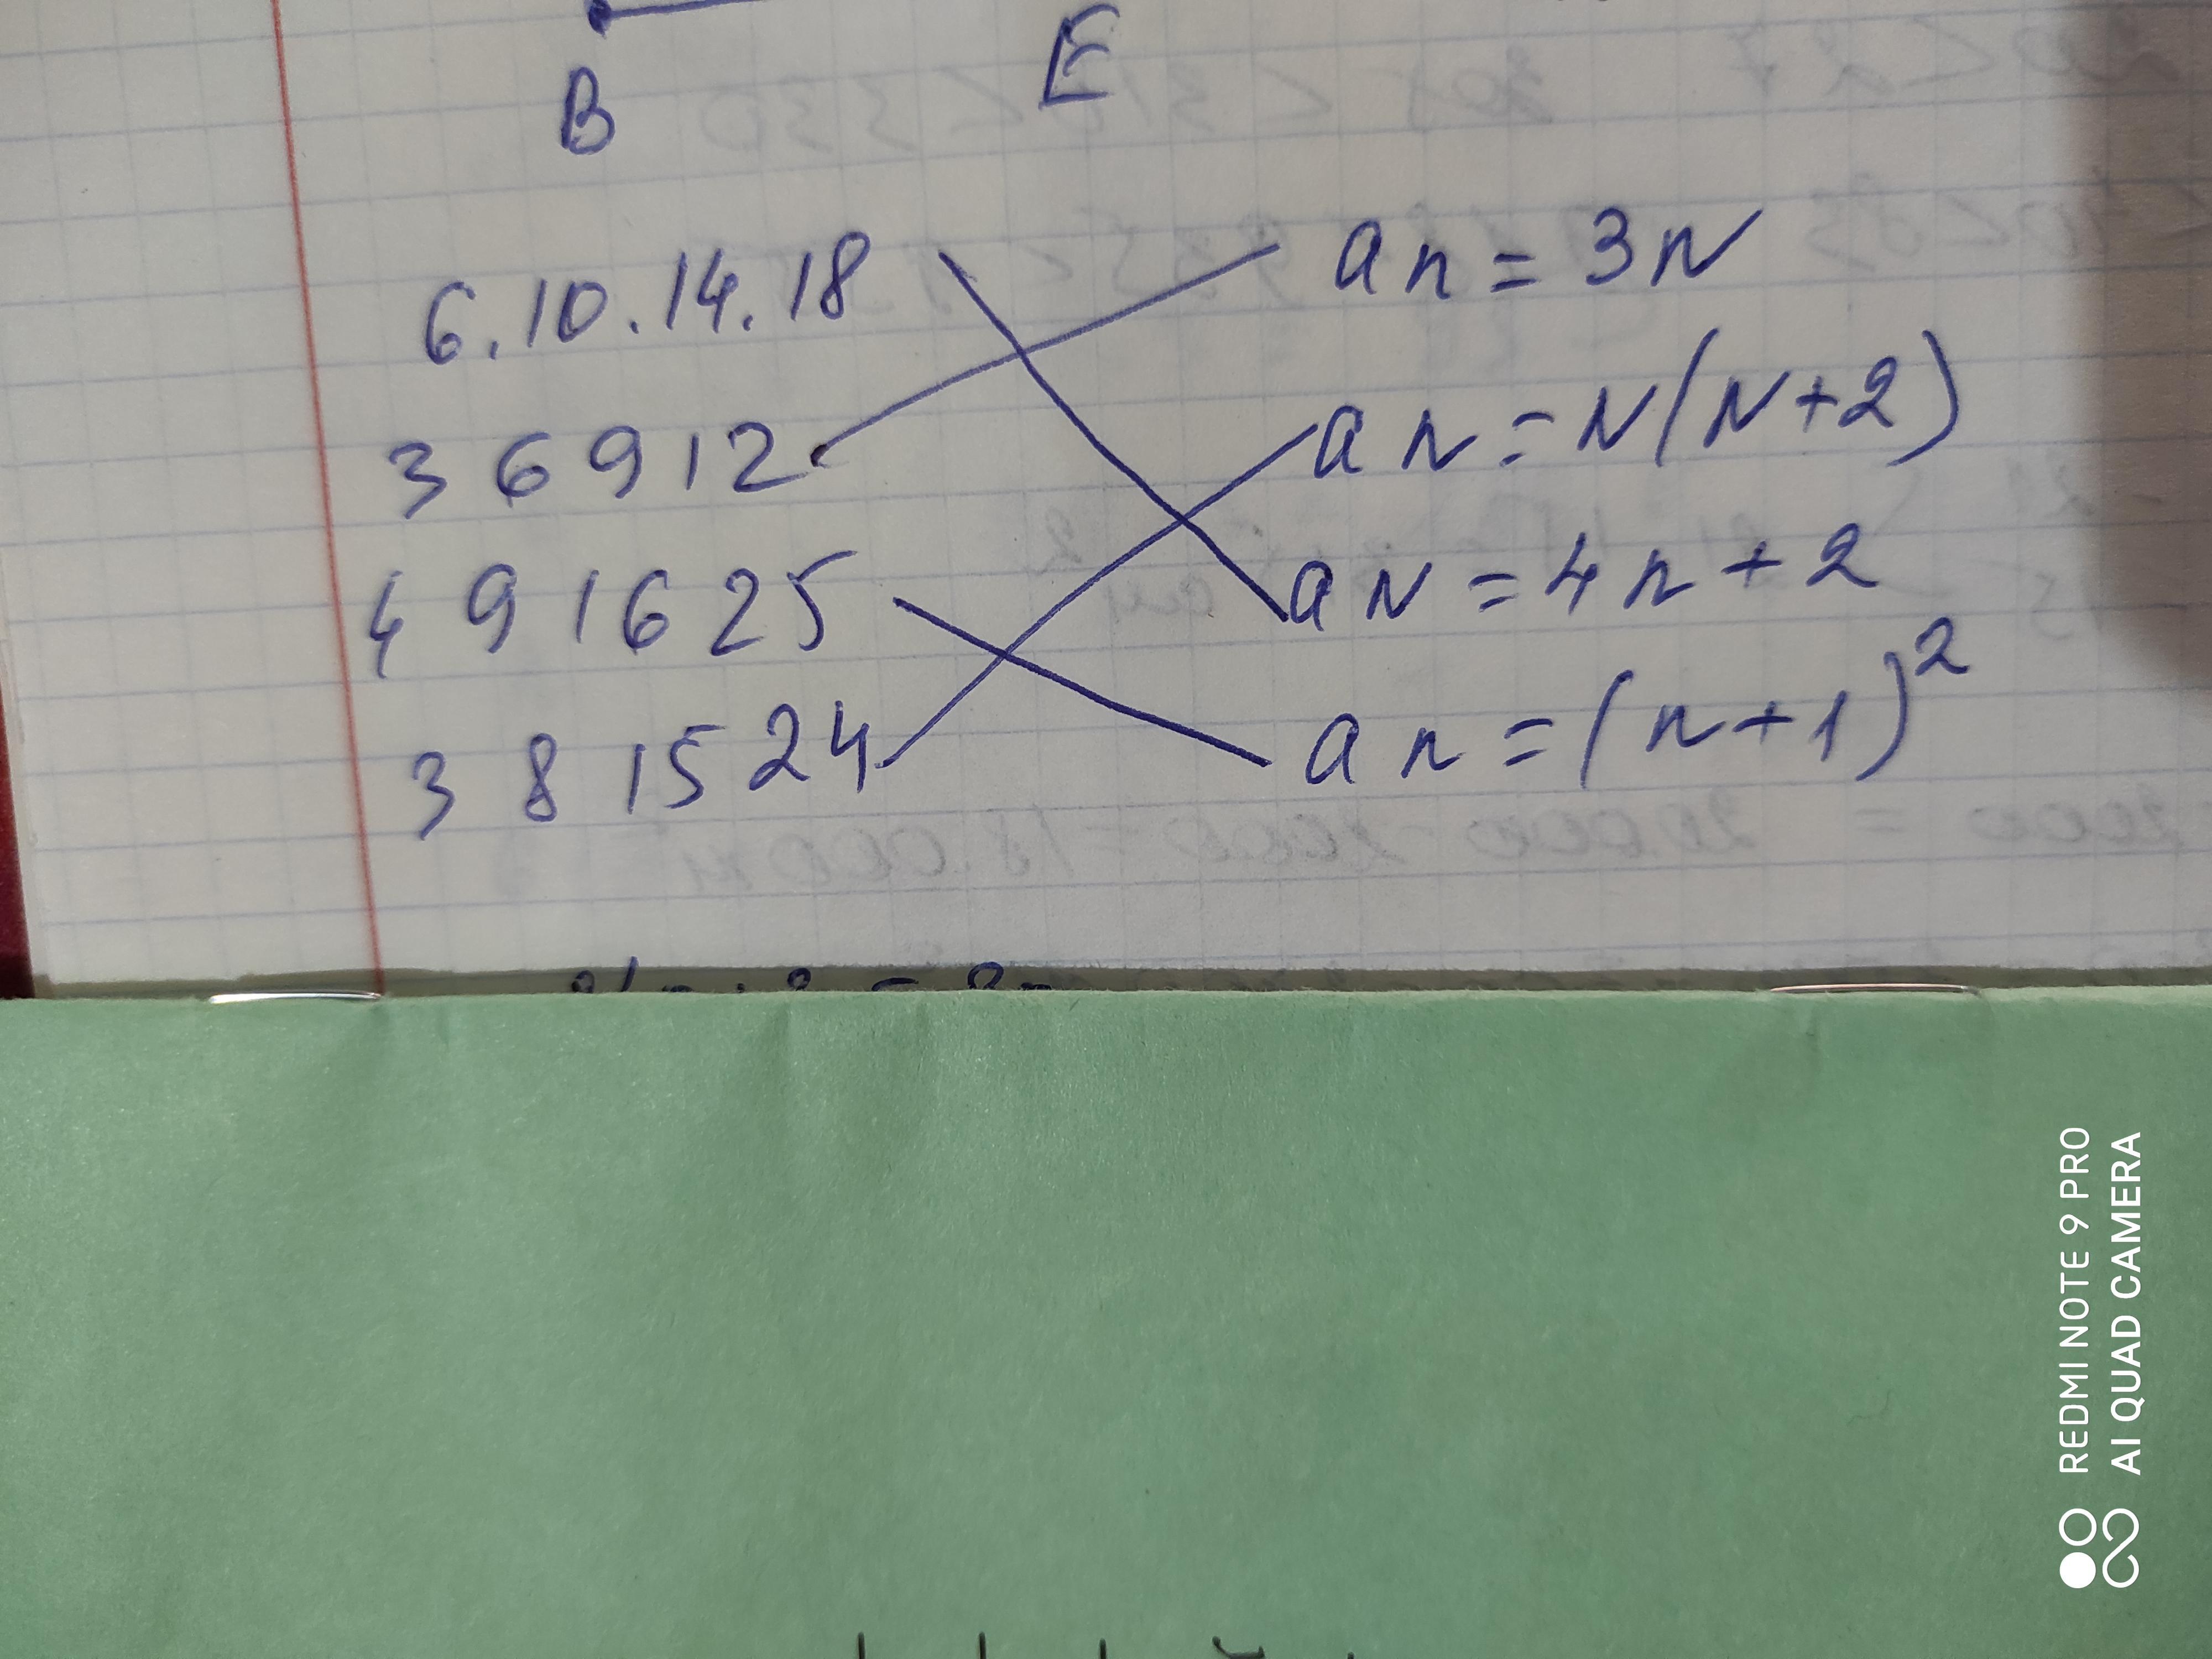 B E
6.10.14.18 an = 3n
3 6 9 12 an = n(n+2)
4 9 16 25 an = 4n+2
3 8 15 24 an = (n+1)²
REDMI NOTE 9 PRO
AI QUAD CAMERA